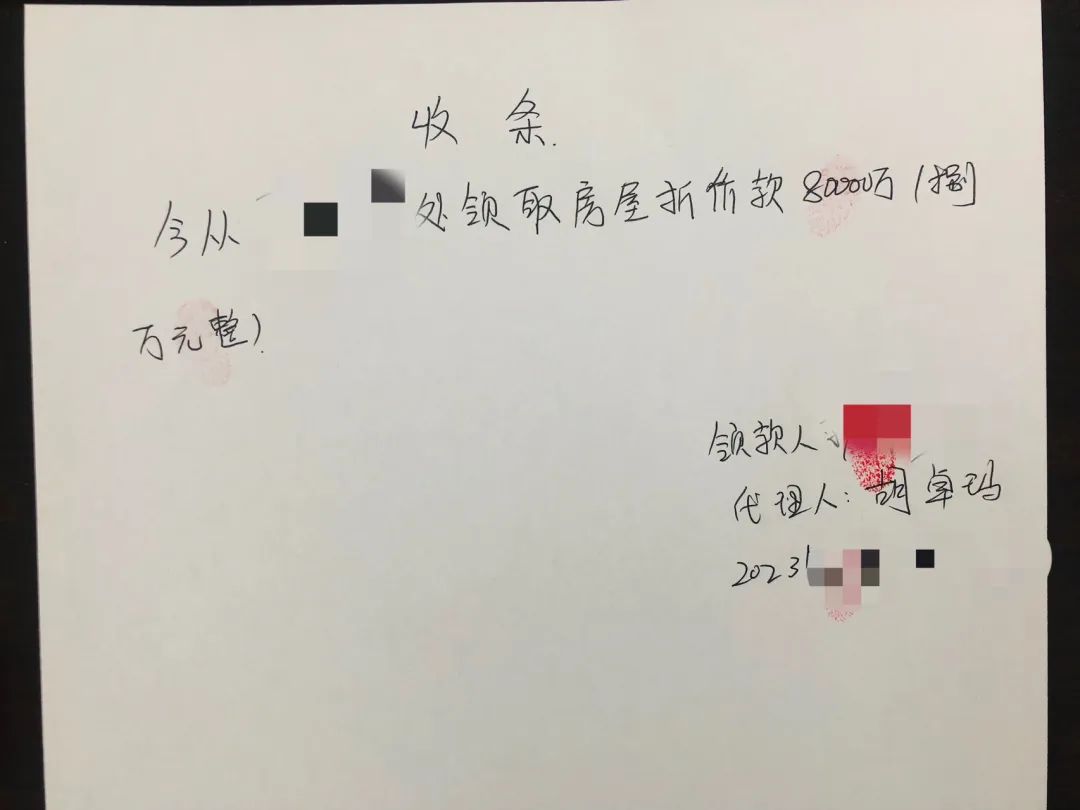 收 条.
今从 处领取房屋折价款80000万(捌
万元整).
领款人
代理人: 胡卓玛
2023